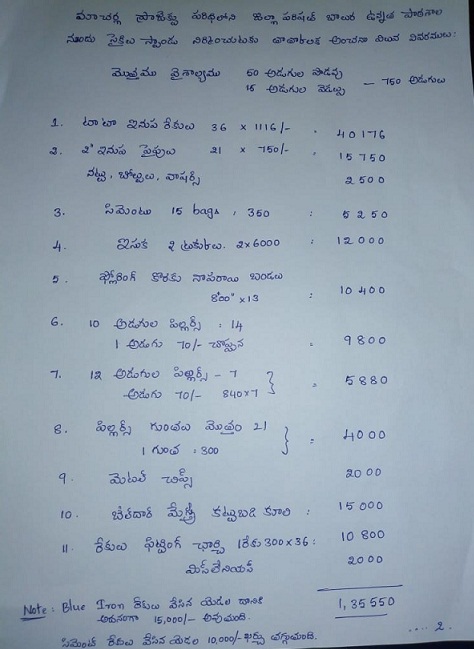 మాచర్ల సొసైటీ పరిధిలోని జిల్లా పరిషత్ బాలుర ఉన్నత పాఠశాల
నందు సైకిలు స్టాండు నిర్మించుటకు తాత్కాలిక అంచనా విలువ వివరములు:
మొత్తము వైశాల్యము 50 అడుగుల పొడవు
15 అడుగుల వెడల్పు — 750 అడుగులు
1. టాటా ఇనుప రేకులు 36 x 1116/- : 40176
2. 2" ఇనుప పైపులు 21 x 750/- : 15750
నట్లు, బోల్టులు, వాషర్స్ 2500
3. సిమెంటు 15 bags : 350 : 5250
4. ఇసుక 2 ట్రక్కులు. 2x6000 : 12000
5. ఫ్లోరింగ్ కొరకు నాపరాయి బండలు
800" x 13 : 10400
6. 10 అడుగుల పిల్లర్స్ : 14
1 అడుగు 70/- చొప్పున : 9800
7. 12 అడుగుల పిల్లర్స్ - 7
అడుగు 70/- 840x7 } = 5880
8. పిల్లర్స్ గుంతలు మొత్తం 21
1 గుంత : 300 } = 4000
9. మెటల్ చిప్స్ 2000
10. బేల్దార్ మేస్త్రీ కట్టుబడి కూలి : 15000
11. రేకులు ఫిట్టింగ్ చార్జి 1రేకు 300x36 : 10800
మిస్‌లేనియస్ 2000
1,35550
Note : Blue Iron రేకులు వేసిన యెడల దానికి
అదనంగా 15,000/- అవుతుంది.
సిమెంట్ రేకులు వేసిన యెడల 10,000/- ఖర్చు తగ్గుతుంది.
.... 2.